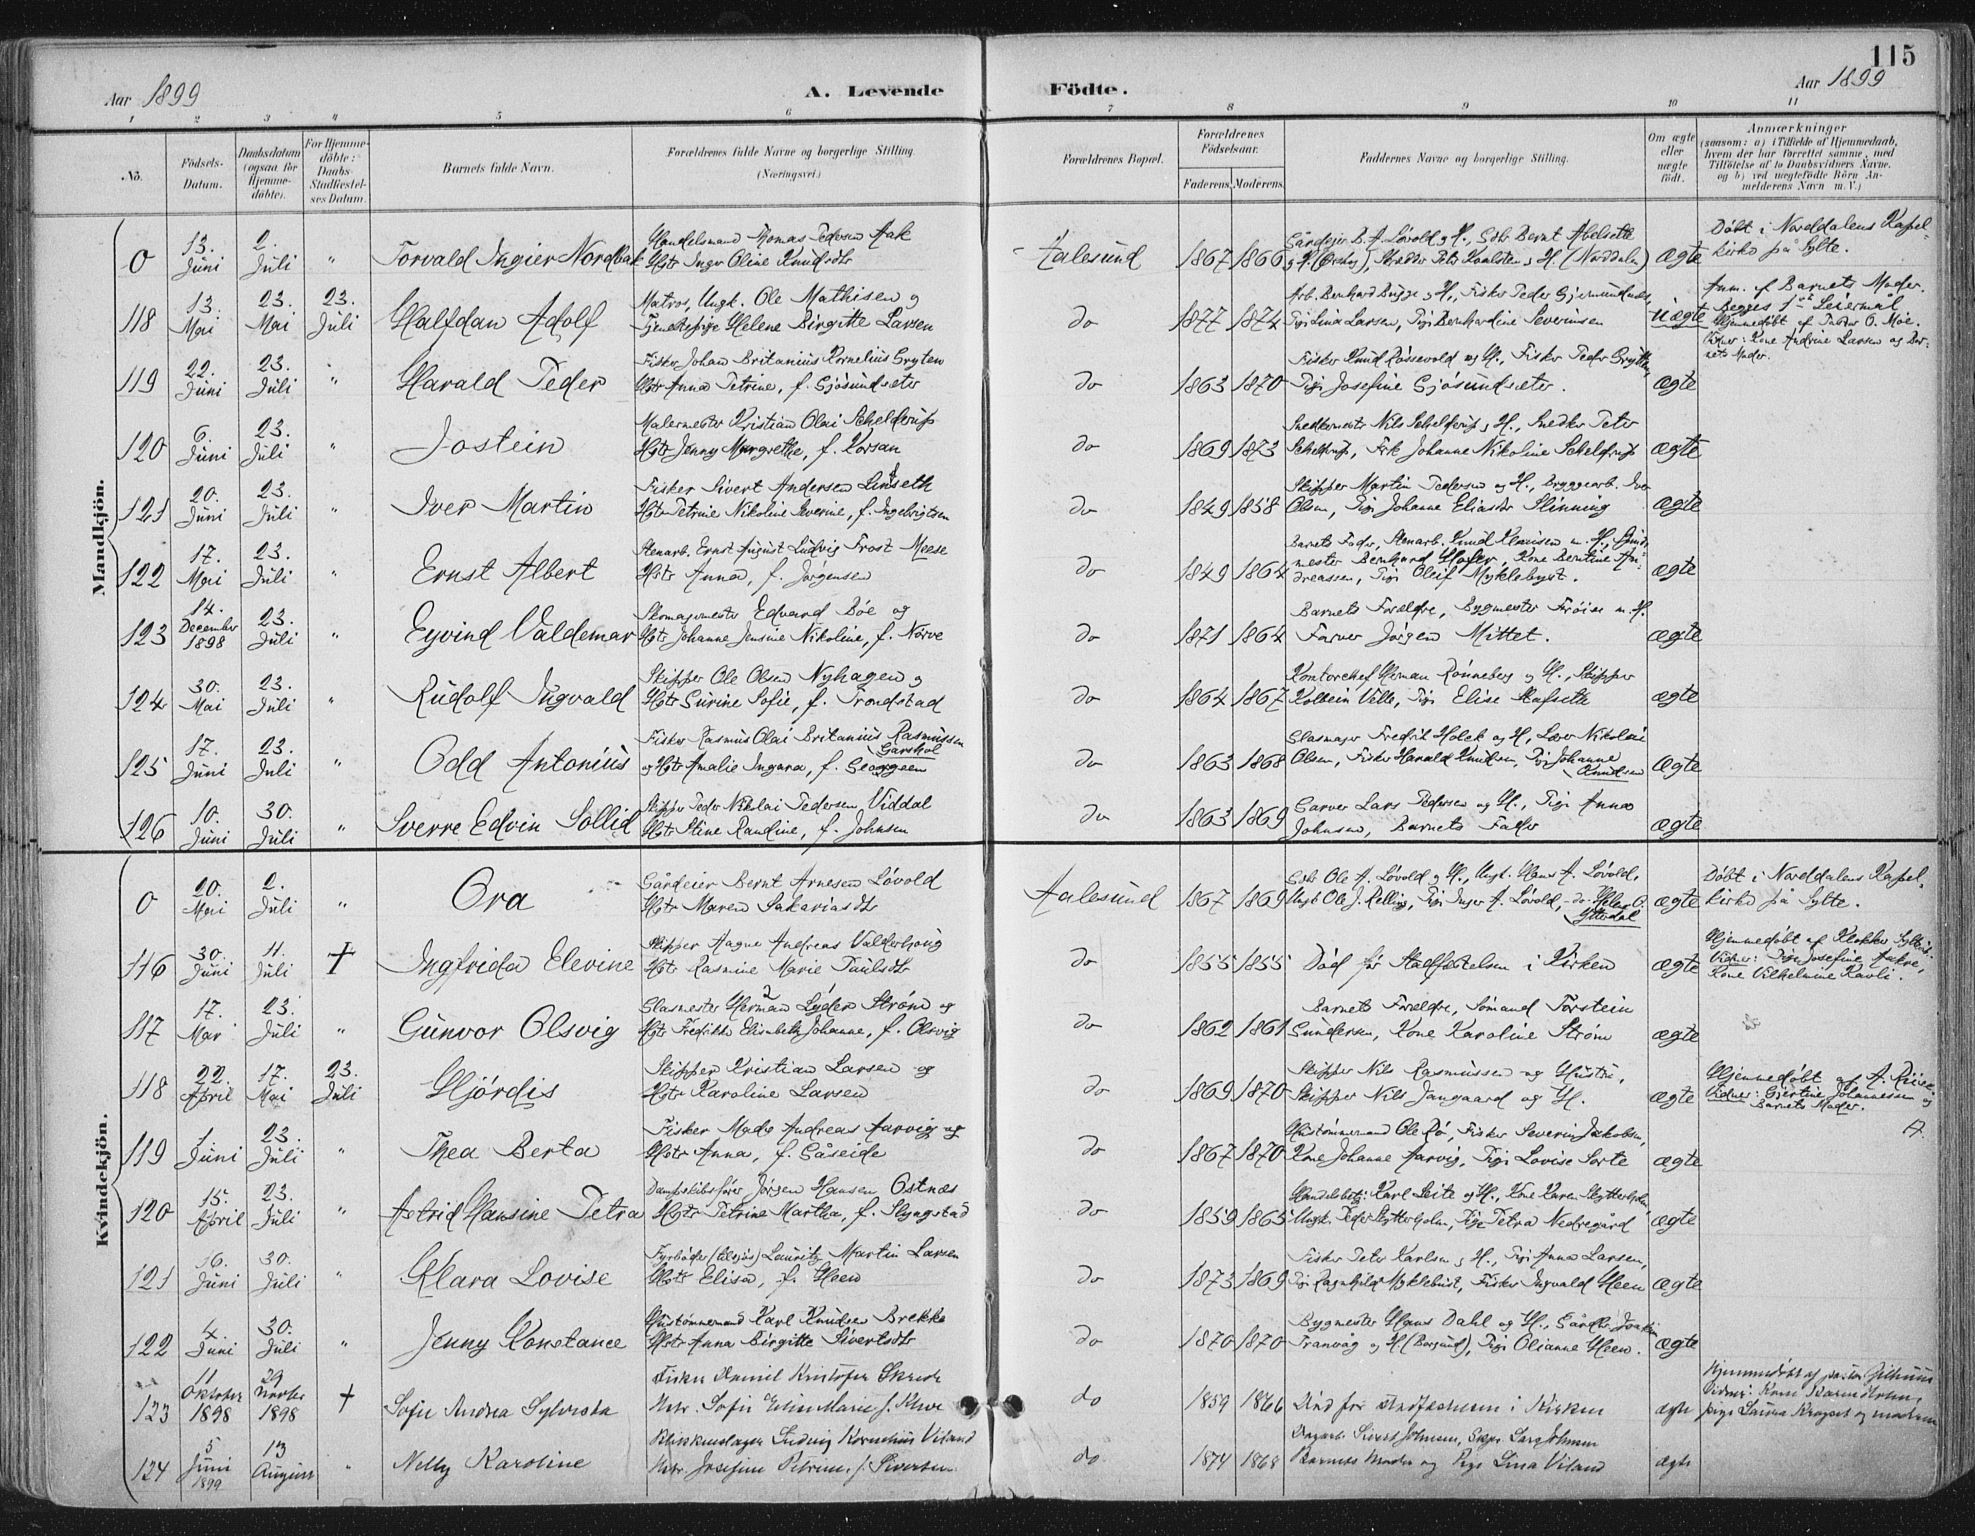 115
Aar 1899 A. Levende Födte. Aar 1899
1 2 3 4 5 6 7 8 9 10 11
No. Födsels-Datum. Daabsdatum (ogsaa for Hjemme-döbte). For Hjemme-döbte: Daabs-Stadfæstel-ses Datum. Barnets fulde Navn. Forældrenes fulde Navne og borgerlige Stilling. (Næringsvei.) Forældrenes Bopæl. Forældrenes Födselsaar. Faderens. Moderens. Faddernes Navne og borgerlige Stilling. Om ægte eller uægte födt. Anmærkninger (saasom: a) i Tilfælde af Hjemmedaab, hvem der har forrettet samme, med Tilföielse af to Daabsvidners Navne, og b) ved uægtefödte Börn An-melderens Navn m. V.)
Mandkjön.
0 13. Juni 2. Juli " Torvald Ingier Nordbak Handelsmand Thomas Pedersen Aak Hstr Inger Oline Knudsdtr Aalesund 1867 1866 Gårdejer B. A. Løvold & H., Bernt Abelseth ægte Døbt i Norddalens Kapel-kirke på Sylte.
118 13. Mai 23. Mai 23. Juli Halfdan Adolf Matros, Ungk. Ole Mathisen og Tjenestepige Helene Birgitte Larsen do 1877 1874 Arb. Bernhard Brigge og H., Fisker Peder Gjermundnes, Pige Lina Larsen, Pige Bernhardine Severinsen Uægte Anm. af Barnets Moder. Begges 1ste Leiermål Hjemmedøbt af Pastor O. Moe. Vidner: Kone Andrine Larsen og Bar-nets Moder.
119 22. Juni 23. Juli " Harald Peder Fisker Johan Britanius Kornelius Gryten Hstr Anna Petrine, f. Gjøsundsæter do 1863 1870 Fisker Knud Røssevold og H., Fisker Peder Grytten, Pige Josefine Gjøsundsæter. ægte
120 6. Juni 23. Juli " Jostein Malermester Kristian Olai Schelderup Hstr Jenny Margrethe, f. Korsan do 1869 1873 Snedkermester Nils Schelderup & H., Snedker Peter Schelderup, Frk Johanne Nikoline Schelderup ægte
121 20. Juni 23. Juli " Iver Martin Fisker Sivert Andersen Linseth Hstr Petrine Nikoline Severine, f. Ingebrigtsen do 1849 1858 Skipper Martin Pedersen og H., Bryggearb. Iver Olsen, Pige Johanne Eliasdtr Slinning ægte
122 17. Mai 23. Juli " Ernst Albert Stenarb. Ernst August Ludvig Frost Meese Hstr Anna, f. Jørgensen do 1849 1864 Barnets Fader, Stenarb. Knud Clausen m. H., mester Bernhard Hofer, Kone Berntine An-dreassen, Pige Oleif Myklebyst. ægte
123 14. December 1898 23. Juli " Eyvind Valdemar Skomagermester Edvard Bøe og Hstr Johanne Jensine Nikoline, f. Nørve do 1871 1864 Barnets Forældre, Bygmester Frøise m. H. Farver Jørgen Mittet. ægte
124 30. Mai 23. Juli " Rudolf Ingvald Skipper Ole Olsen Nyhagen & Hstr Surine Sofie, f. Trondstad do 1864 1867 Kontorchef Herman Rønneberg og H., Skipper Kolbein Velle, Pige Elise Hafseth ægte
125 17. Juni 23. Juli " Odd Antonius Fisker Rasmus Olai Britanius Rasmussen Garshol og Hstr Amalie Ingara, f. Georgsen do 1863 1868 Glasmager Fredrik Holck og H., Lærer Nikolai Olsen, Fisker Harald Knudsen, Pige Johanne Knudsen ægte
126 10. Juni 30. Juli " Sverre Edvin Sollid Skipper Peder Nikolai Pedersen Viddal Hstr Stine Randine, f. Johnsen do 1863 1869 Garver Lars Pedersen og H., Pige Anna Johnsen, Barnets Fader ægte
Kvindekjön.
0 20. Mai 2. Juli " Ora Gårdeier Bernt Arnesen Løvold Hstr Maren Sakariasdtr Aalesund 1867 1869 Gdb Ole A. Løvold & H., Ungk. Hans A. Løvold, Ungk Ole J. Relling, Pige Inger A. Løvold, do. Helene O. Yttredal ægte Døbt i Norddalens Kapel-kirke på Sylte.
116 30. Juni 11. Juli + Ingfrida Elevine Skipper Aagne Andreas Valderhoug Hstr Rasmine Marie Paulsdtr do 1855 1855 Død før Stadfæstelsen i Kirken ægte Hjemmedøbt af Klokker Vidner: Pige Josefine Aakre, Kone Vilhelmine Ravli.
117 17. Mai 23. Juli " Gunvor Olsvig Glasmester Herman Lyder Strøm og Hstr Fredikke Elisabeth Johanne, f. Olsvig do 1862 1861 Barnets Forældre, Sømand Torstein Gundersen, Kone Karoline Strøm ægte
118 22. April 17. Mai 23. Juli Hjørdis Skipper Kristian Larsen og Hstr Karoline Larsen do 1869 1870 Skipper Nils Rasmussen og Hustru, Skipper Nils Jangaard og H. ægte Hjemmedøbt af A. Riise Vidner: Gjertine Johannessen og Barnets Moder.
119 1 Juni 23. Juli " Thea Berta Fisker Mads Andreas Aarvig og Hstr Anna, f. Gåseide do 1867 1870 Hustømmermand Ole Rø, Fisker Severin Jakobsen, Kone Johanne Aarvig, Pige Lovise Sorte ægte
120 15. April 23. Juli " Astrid Hansine Petra Dampskibsfører Jørgen Hansen Ostnæs Hstr Petrine Martha, f. Slyngstad do 1859 1865 Karl Leite og H., Kone Karen Skytterholm, Ungk. Peder Skytterholm, Pige Petra Nedregård ægte
121 16. Juni 30. Juli " Klara Lovise Fyrbøder (tilsjøs) Lauritz Martin Larsen Hstr Elisa, f. Heen do 1873 1869 Fisker Peter Karlsen & H., Pige Anna Larsen, Pige Ragnhild Myklebust, Fisker Ingvald Heen ægte
122 4 Juni 30. Juli " Jenny Konstance Hustømmermand Karl Knudsen Brekke Hstr Anna Birgitte Sivertsdtr do 1870 1870 Bygmester Hans Dahl og H., Gårdbr Joakim Tranvåg og H (Borgund), Pige Olianne Heen. ægte
123 11 Oktober 1898 29 Novber 1898 + Sofie Andrea Sylveska Fisker Daniel Kristofer Skrede Hstr. Sofie Elen Marie f. do 1859 1866 Død før stadfæstelsen i Kirken ægte Hjemmedøbt af pastor Vidner: Kone Karen pige og moderen
124 5 Juni 1899 13 August " Nelly Karoline Blikkenslager Ludvig Kornelius Viland Hstr. Josefine Petrine f. Sivertsen do 1874 1868 Dagarb. Sivert Johnsen, Barnets Moder og Pige Lina Viland ægte